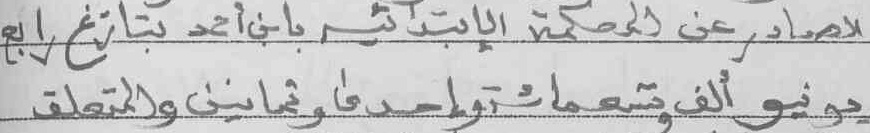 الصادر عن المحكمة الابتدائية بابن أحمد بتاريخ رابع
يونيو ألف وتسعمائة وإحدى وثمانين والمتعلق